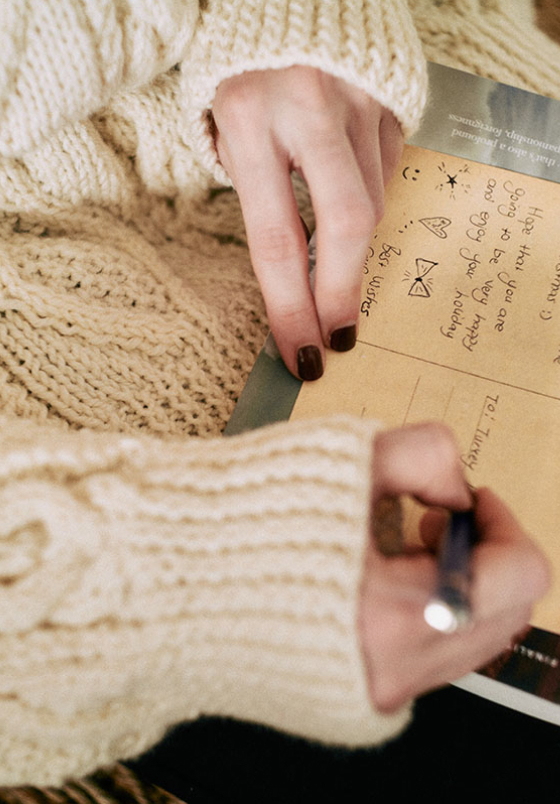 Hope that you are
going to be very happy
and enjoy you holiday
Best Wishes
To: Turkey
that's also a profound
panionship, foreignness
FINALI